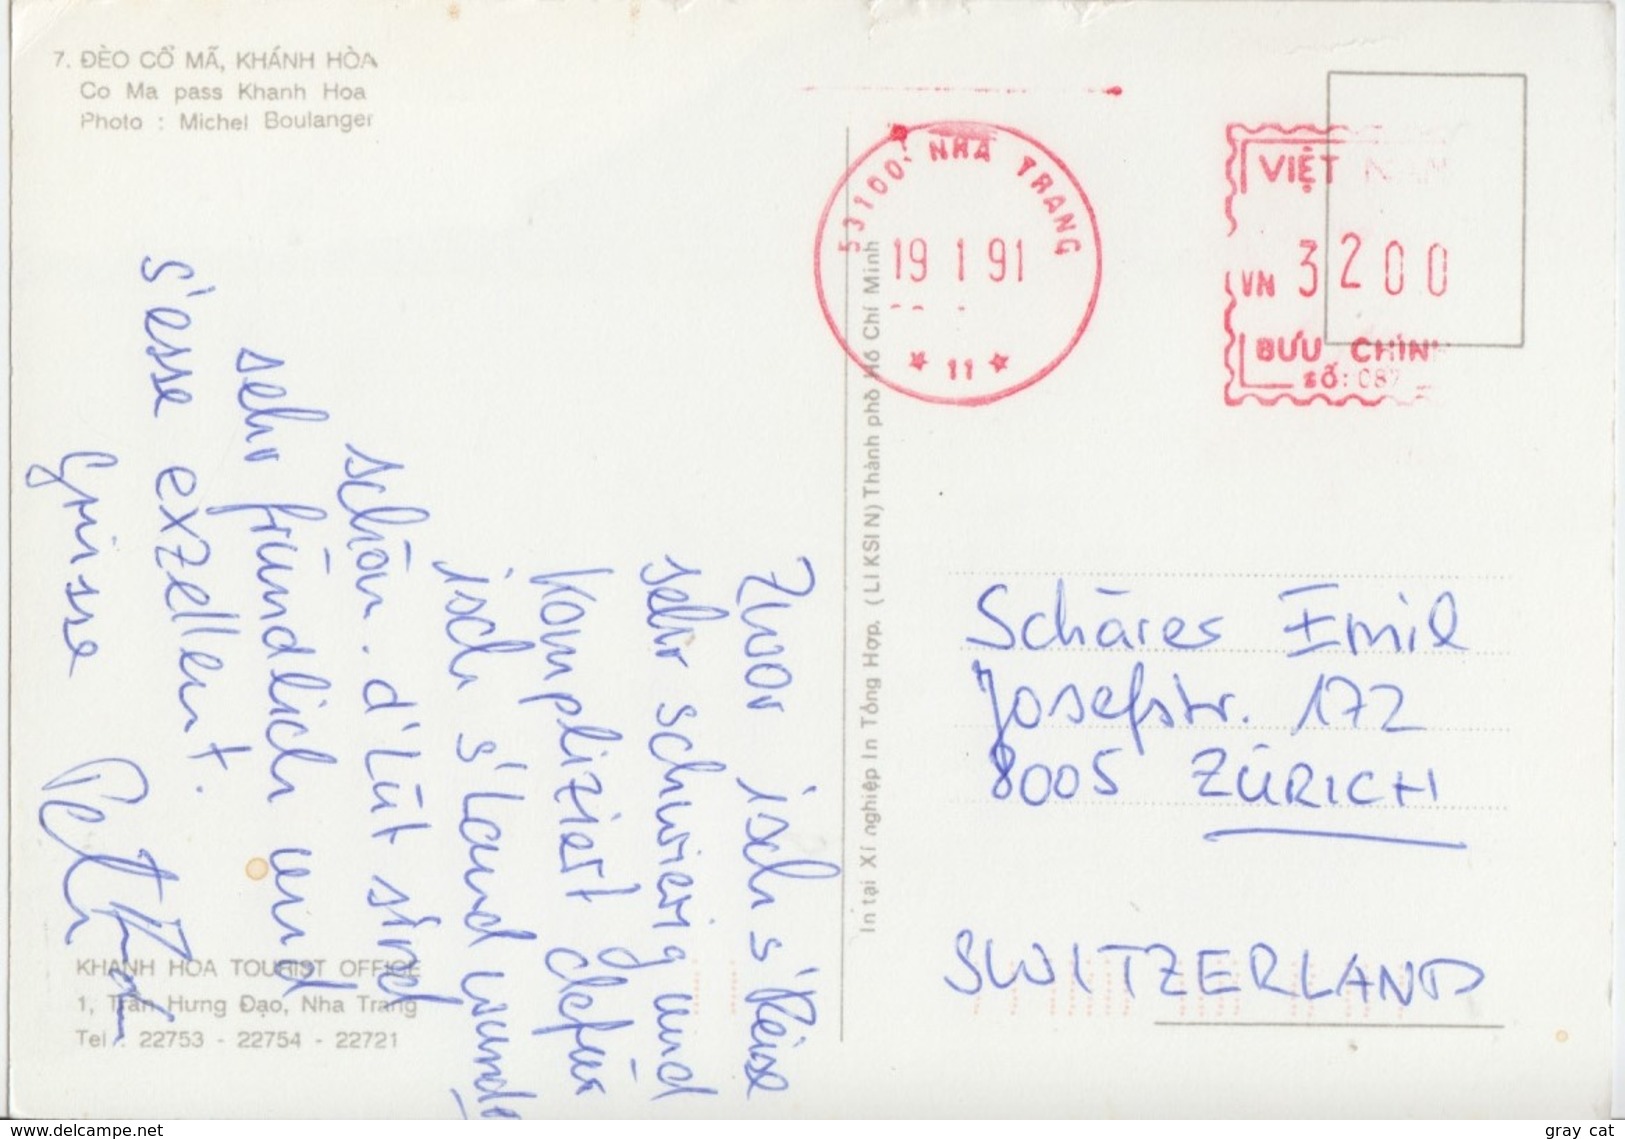 7. ĐÈO CỔ MÃ, KHÁNH HÒA
Co Ma pass Khanh Hoa
Photo : Michel Boulanger
Zwar isch s'Reise
sehr schwierig und
kompliziert defür
isch s'Land wunder
schön. d'Lüt sind
sehr fründlich und
s'esse exzellent.
Grüsse
KHANH HOA TOURIST OFFICE
1, Trần Hưng Đạo, Nha Trang
Tel : 22753 - 22754 - 22721
In tại Xí nghiệp In Tổng Hợp. (LIKSIN) Thành phố Hồ Chí Minh
53100. NHA TRANG
19 1 91
* 11 *
VIỆT NAM
VN 3200
BƯU CHÍNH
SỐ: 087
Schärer Emil
Josefstr. 172
8005 ZÜRICH
SWITZERLAND
www.delcampe.net
gray cat